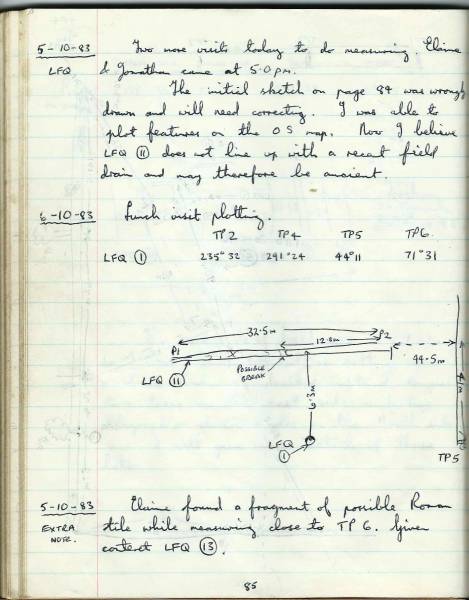 5-10-83 Two more visits today to do measuring. Elaine
LFQ & Jonathan came at 5.0 pm.
The initial sketch on page 84 was wrongly
drawn and will need correcting. I was able to
plot features on the OS map. Now I believe
LFQ ⑪ does not line up with a recent field
drain and may therefore be ancient.
6-10-83 Lunch visit plotting.
TP2 TP4 TP5 TP6
LFQ ① 235°32 291°24 44°11 71°31
32.5m
P1 12.8m P2
44.5m
POSSIBLE
BREAK
LFQ ⑪
6.3m
LFQ
①
TP5
5-10-83 Elaine found a fragment of possible Roman
EXTRA tile while measuring close to TP 6. Given
NOTE. context LFQ ⑬.
85